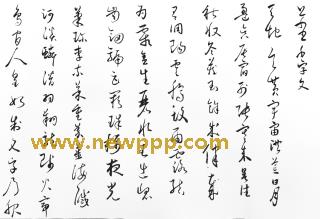 千字文
天地玄黃宇宙洪荒日月
盈昃辰宿列張寒來暑往
秋收冬藏閏餘成歲律呂
調陽雲騰致雨露結
為霜金生麗水玉出崑
崗劍號巨闕珠稱夜光
菓珍李柰菜重芥薑海鹹
河淡鱗潛羽翔龍師火帝
鳥官人皇始制文字乃服
www.newppp.com